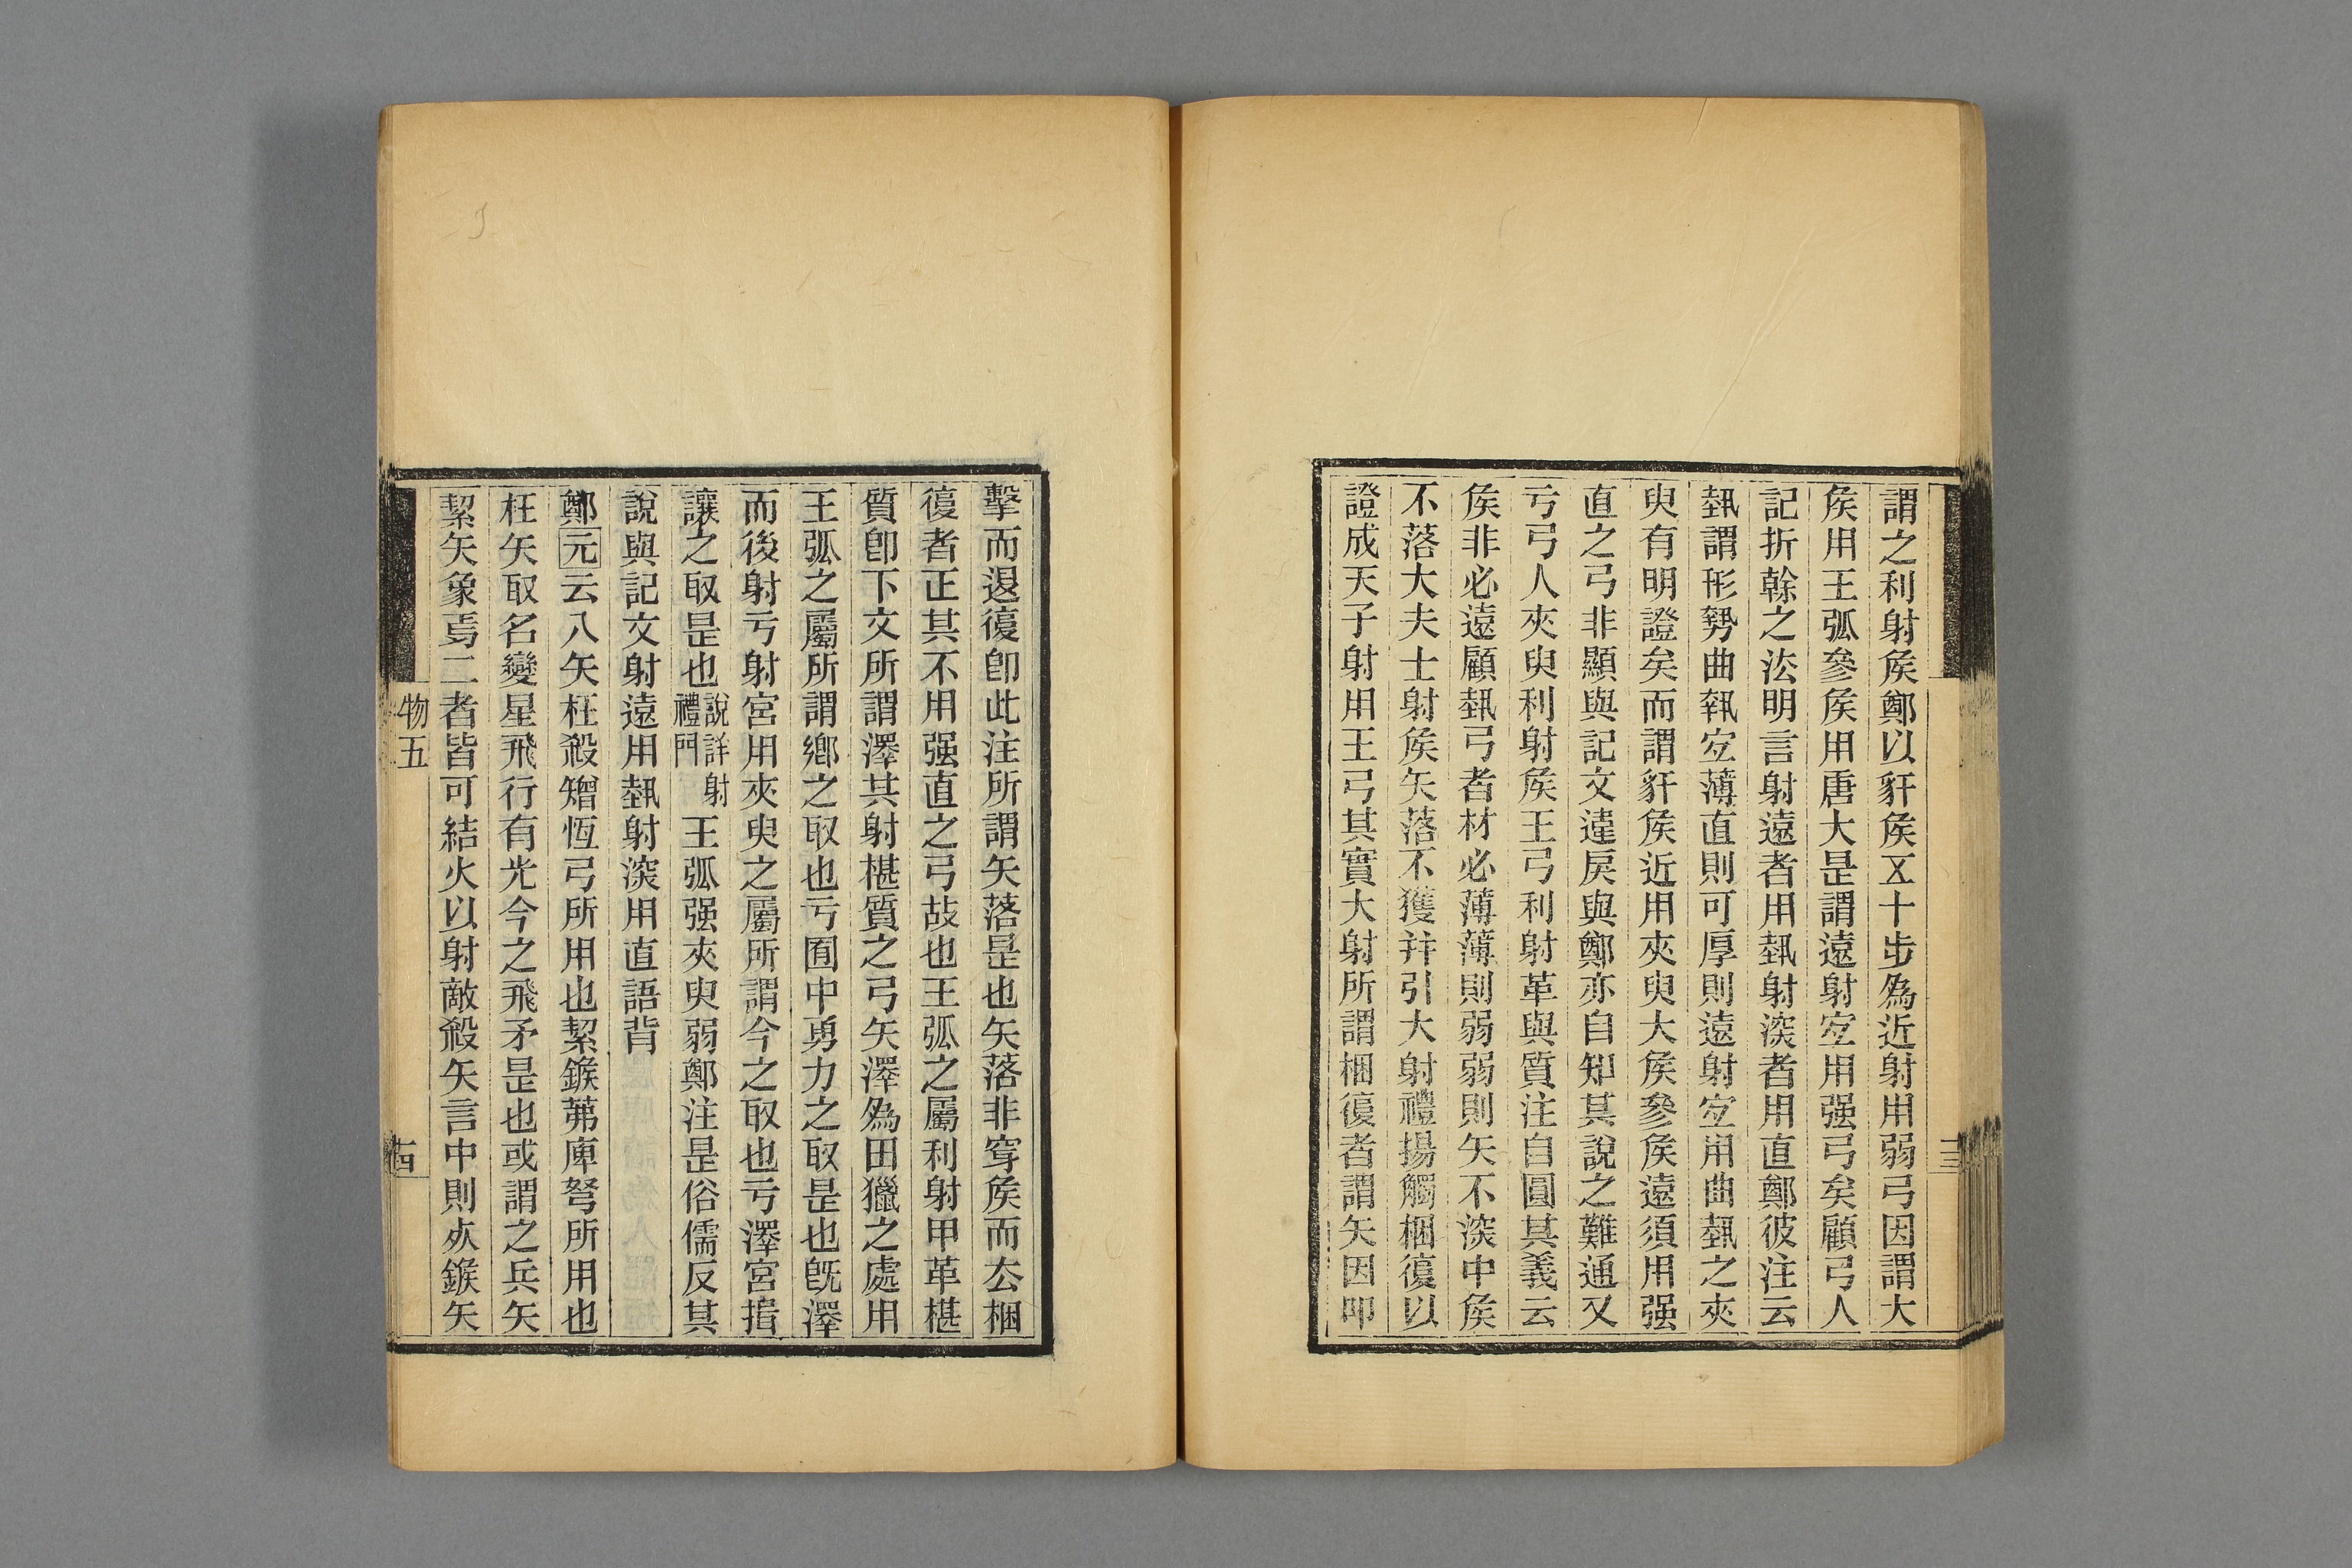 謂之利射矦鄭以豻矦㐅十步爲近射用弱弓因謂大
矦用王弧參矦用唐大是謂遠射宐用强弓矣顧弓人
記折榦之法明言射遠者用埶射深者用直鄭彼注云
埶謂形勢曲埶宐薄直則可厚則遠射宐用曲埶之夾
臾有明證矣而謂豻矦近用夾臾大矦參矦遠須用强
直之弓非顯與記文違戾與鄭亦自知其說之難通又
亏弓人夾臾利射矦王弓利射革與質注自圓其義云
矦非必遠顧埶弓者材必薄薄則弱弱則矢不深中矦
不落大夫士射矦矢落不獲幷引大射禮揚觸梱復以
證成天子射用王弓其實大射所謂梱復者謂矢因叩
物五
擊而退復卽此注所謂矢落是也矢落非穿矦而厺梱
復者正其不用强直之弓故也王弧之屬利射甲革椹
質卽下文所謂澤其射椹質之弓矢澤爲田獵之處用
王弧之屬所謂鄉之取也亏囿中勇力之取是也旣澤
而後射亏射宮用夾臾之屬所謂今之取也亏澤宮揖
讓之取是也說詳射禮門王弧强夾臾弱鄭注是俗儒反其
說與記文射遠用埶射深用直語背
鄭元云八矢枉殺矰恆弓所用也絜鍭茀庳弩所用也
枉矢取名變星飛行有光今之飛矛是也或謂之兵矢
絜矢象焉二者皆可結火以射敵殺矢言中則𣦸鍭矢
十四